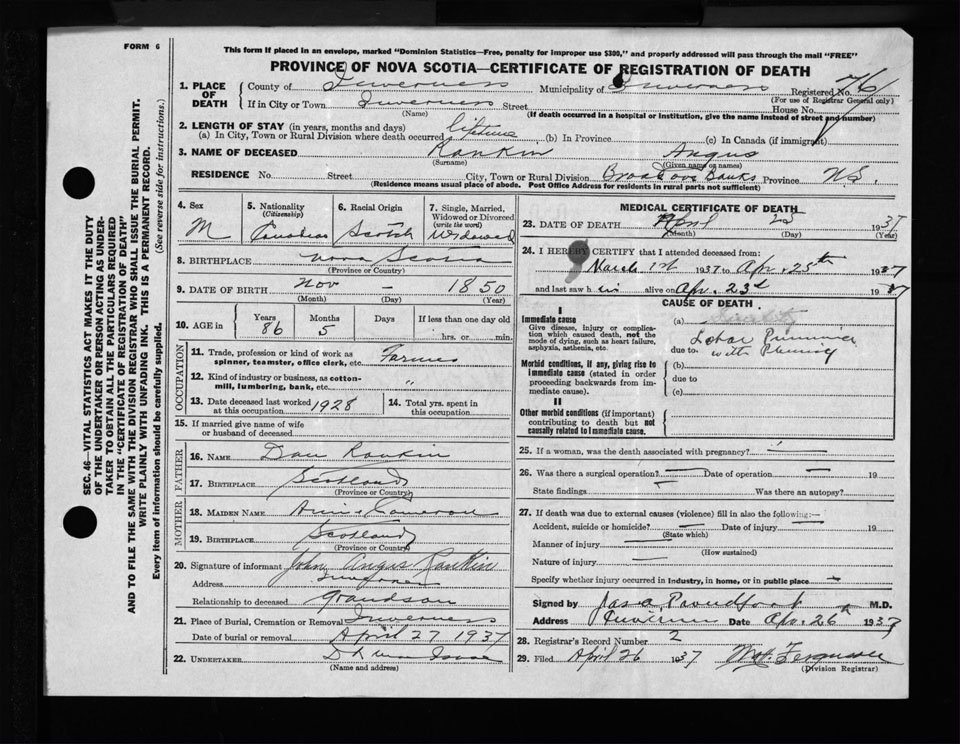 FORM 6
This form if placed in an envelope, marked "Dominion Statistics—Free, penalty for improper use $300," and properly addressed will pass through the mail "FREE"
PROVINCE OF NOVA SCOTIA—CERTIFICATE OF REGISTRATION OF DEATH
1. PLACE OF DEATH
County of Inverness Municipality of Inverness Registered No. 76
(For use of Registrar General only)
If in City or Town Inverness Street House No.
(Name) (If death occurred in a hospital or institution, give the name instead of street and number)
2. LENGTH OF STAY (in years, months and days)
(a) In City, Town or Rural Division where death occurred lifetime (b) In Province (c) In Canada (if immigrant)
3. NAME OF DECEASED Rankin Angus
(Surname) (Given name or names)
RESIDENCE No. Street City, Town or Rural Division Broad Cove Banks Province N.S.
(Residence means usual place of abode. Post Office Address for residents in rural parts not sufficient)
4. Sex
M
5. Nationality
(Citizenship)
Canadian
6. Racial Origin
Scotch
7. Single, Married, Widowed or Divorced
(write the word)
Widowed
8. BIRTHPLACE Nova Scotia
(Province or Country)
9. DATE OF BIRTH Nov — 1850
(Month) (Day) (Year)
10. AGE in
Years Months Days If less than one day old
86 5 hrs. or min.
OCCUPATION
11. Trade, profession or kind of work as spinner, teamster, office clerk, etc. Farmer
12. Kind of industry or business, as cotton-mill, lumbering, bank, etc. "
13. Date deceased last worked at this occupation 1928
14. Total yrs. spent in this occupation
15. If married give name of wife or husband of deceased
FATHER
16. NAME Dan Rankin
17. BIRTHPLACE Scotland
(Province or Country)
MOTHER
18. MAIDEN NAME Annie Cameron
19. BIRTHPLACE Scotland
(Province or Country)
20. Signature of informant John Angus Rankin
Address Inverness
Relationship to deceased Grandson
21. Place of Burial, Cremation or Removal Inverness
Date of burial or removal April 27 1937
22. UNDERTAKER
(Name and address)
MEDICAL CERTIFICATE OF DEATH
23. DATE OF DEATH April 25 1937
(Month) (Day) (Year)
24. I HEREBY CERTIFY that I attended deceased from:
March 1st 1937 to Apr. 25th 1937
and last saw h im alive on Apr. 23d 1937
CAUSE OF DEATH
I
Immediate cause
Give disease, injury or complication which caused death, not the mode of dying, such as heart failure, asphyxia, asthenia, etc.
(a)
due to Lobar Pneumonia
with Pleurisy
Morbid conditions, if any, giving rise to immediate cause (stated in order proceeding backwards from immediate cause).
(b)
due to
(c)
II
Other morbid conditions (if important) contributing to death but not causally related to immediate cause.
25. If a woman, was the death associated with pregnancy? —
26. Was there a surgical operation? — Date of operation — 19
State findings — Was there an autopsy?
27. If death was due to external causes (violence) fill in also the following:—
Accident, suicide or homicide? — Date of injury — 19
(State which)
Manner of injury —
(How sustained)
Nature of injury —
Specify whether injury occurred in industry, in home, or in public place —
Signed by Jas. A. Proudfoot M.D.
Address Inverness Date Apr. 26th 1937
28. Registrar's Record Number 2
29. Filed April 26 1937 Ferguson
(Division Registrar)
SEC. 46—VITAL STATISTICS ACT MAKES IT THE DUTY
OF THE UNDERTAKER OR PERSON ACTING AS UNDER-
TAKER TO OBTAIN ALL THE PARTICULARS REQUIRED
IN THE "CERTIFICATE OF REGISTRATION OF DEATH"
AND TO FILE THE SAME WITH THE DIVISION REGISTRAR WHO SHALL ISSUE THE BURIAL PERMIT.
WRITE PLAINLY WITH UNFADING INK. THIS IS A PERMANENT RECORD.
Every item of information should be carefully supplied. (See reverse side for instructions.)